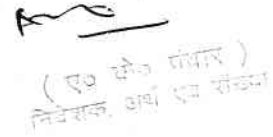 ( ए० के० पंवार )
निदेशक, अर्थ एवं संख्या